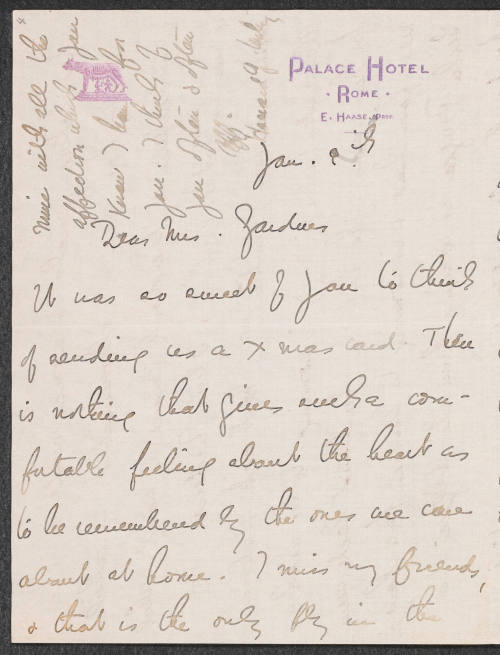 PALACE HOTEL
· ROME ·
E. HAASE, PROP.
Jan. 9th
Dear Mrs. Gardner
It was so sweet of you to think
of sending us a Xmas card. There
is nothing that gives such a com-
fortable feeling about the heart as
to be remembered by the ones we care
about at home. I miss my friends,
& that is the only fly in the
mine with all the
affection which you
know I have for
you. I think of
you often & often